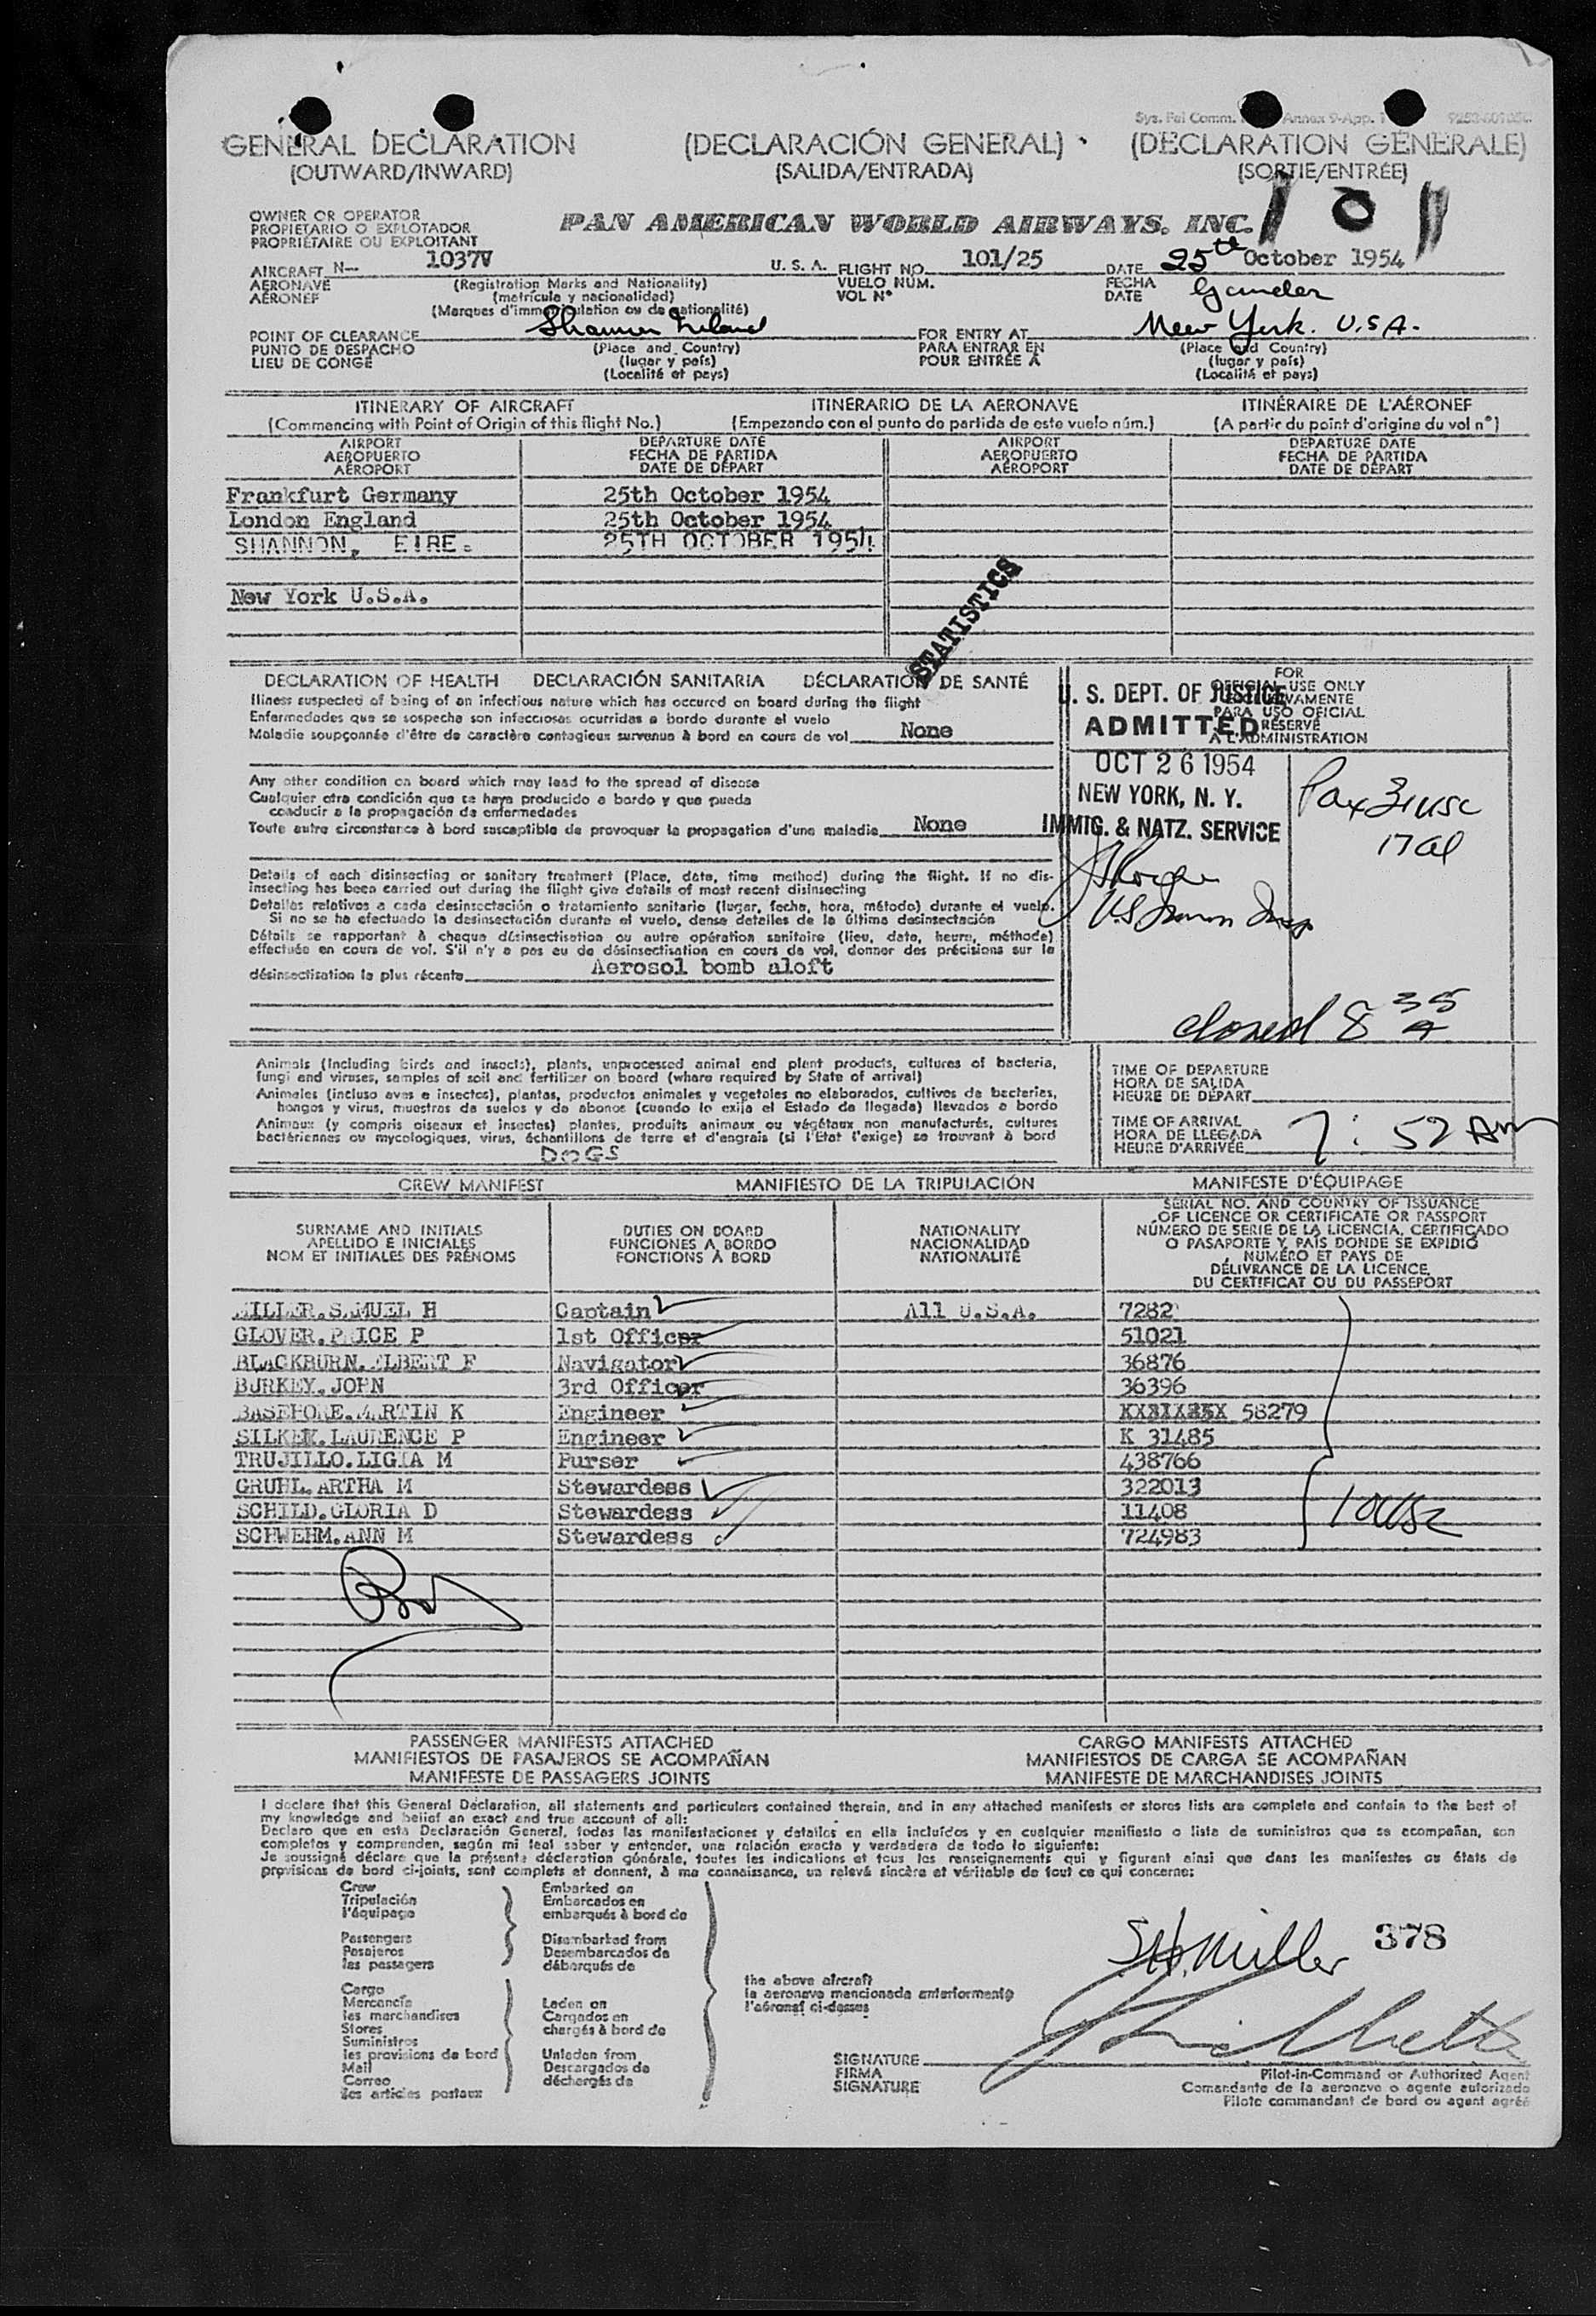 Sys. Fel Comm. Annex 9-App. 1
GENERAL DECLARATION (DECLARACIÓN GENERAL) (DÉCLARATION GÉNÉRALE)
(OUTWARD/INWARD) (SALIDA/ENTRADA) (SORTIE/ENTRÉE)
101
OWNER OR OPERATOR
PROPIETARIO O EXPLOTADOR
PROPRIÉTAIRE OU EXPLOITANT
PAN AMERICAN WORLD AIRWAYS, INC.
AIRCRAFT N— 1037V U. S. A. FLIGHT NO. 101/25 DATE 25th October 1954
AERONAVE (Registration Marks and Nationality) VUELO NÚM. FECHA Gander
AÉRONEF (matrícula y nacionalidad) VOL N° DATE
(Marques d'immatriculation ou de nationalité)
POINT OF CLEARANCE Shannon Ireland FOR ENTRY AT New York. U.S.A.
PUNTO DE DESPACHO (Place and Country) PARA ENTRAR EN (Place and Country)
LIEU DE CONGÉ (lugar y país) POUR ENTRÉE À (lugar y país)
(Localité et pays) (Localité et pays)
ITINERARY OF AIRCRAFT ITINERARIO DE LA AERONAVE ITINÉRAIRE DE L'AÉRONEF
(Commencing with Point of Origin of this flight No.) (Empezando con el punto de partida de este vuelo núm.) (A partir du point d'origine du vol n°)
AIRPORT DEPARTURE DATE AIRPORT DEPARTURE DATE
AEROPUERTO FECHA DE PARTIDA AEROPUERTO FECHA DE PARTIDA
AÉROPORT DATE DE DÉPART AÉROPORT DATE DE DÉPART
Frankfurt Germany 25th October 1954
London England 25th October 1954
SHANNON, EIRE. 25TH OCTOBER 1954
New York U.S.A.
STATISTICS
DECLARATION OF HEALTH DECLARACIÓN SANITARIA DÉCLARATION DE SANTÉ
Illness suspected of being of an infectious nature which has occured on board during the flight
Enfermedades que se sospecha son infecciosas ocurridas a bordo durante el vuelo
Maladie soupçonnée d'être de caractère contagieux survenue à bord en cours de vol None
Any other condition on board which may lead to the spread of disease
Cualquier otra condición que se haya producido a bordo y que pueda
conducir a la propagación de enfermedades
Toute autre circonstance à bord susceptible de provoquer la propagation d'une maladie None
Details of each disinsecting or sanitary treatment (Place, date, time method) during the flight. If no dis-
insecting has been carried out during the flight give details of most recent disinsecting
Detalles relativos a cada desinsectación o tratamiento sanitario (lugar, fecha, hora, método) durante el vuelo.
Si no se ha efectuado la desinsectación durante el vuelo, dense detalles de la última desinsectación
Détails se rapportant à chaque désinsectisation ou autre opération sanitaire (lieu, date, heure, méthode)
effectuée en cours de vol. S'il n'y a pas eu de désinsectisation en cours de vol, donner des précisions sur la
désinsectisation la plus récente Aerosol bomb aloft
FOR
OFFICIAL USE ONLY
PARA USO OFICIAL
RÉSERVÉ
À L'ADMINISTRATION
U. S. DEPT. OF JUSTICE
ADMITTED
OCT 26 1954
NEW YORK, N. Y.
IMMIG. & NATZ. SERVICE
Pax 31 USC
17 al
closed 8 35 A
Animals (Including birds and insects), plants, unprocessed animal and plant products, cultures of bacteria,
fungi and viruses, samples of soil and fertilizer on board (where required by State of arrival)
Animales (incluso aves e insectos), plantas, productos animales y vegetales no elaborados, cultivos de bacterias,
hongos y virus, muestras de suelos y de abonos (cuando lo exija el Estado de llegada) llevados a bordo
Animaux (y compris oiseaux et insectes) plantes, produits animaux ou végétaux non manufacturés, cultures
bactériennes ou mycologiques, virus, échantillons de terre et d'engrais (si l'Etat l'exige) se trouvant à bord
DOGS
TIME OF DEPARTURE
HORA DE SALIDA
HEURE DE DÉPART
TIME OF ARRIVAL
HORA DE LLEGADA
HEURE D'ARRIVÉE 7: 52 Am
CREW MANIFEST MANIFIESTO DE LA TRIPULACIÓN MANIFESTE D'ÉQUIPAGE
SURNAME AND INITIALS
APELLIDO E INICIALES
NOM ET INITIALES DES PRÉNOMS
DUTIES ON BOARD
FUNCIONES A BORDO
FONCTIONS À BORD
NATIONALITY
NACIONALIDAD
NATIONALITÉ
SERIAL NO. AND COUNTRY OF ISSUANCE
OF LICENCE OR CERTIFICATE OR PASSPORT
NÚMERO DE SERIE DE LA LICENCIA, CERTIFICADO
O PASAPORTE Y PAÍS DONDE SE EXPIDIÓ
NUMÉRO ET PAYS DE
DÉLIVRANCE DE LA LICENCE
DU CERTIFICAT OU DU PASSEPORT
MILLER.SAMUEL H Captain All U.S.A. 7282
GLOVER.PRICE P 1st Officer 51021
BLACKBURN.ELBERT F Navigator 36876
BURKEY.JOHN 3rd Officer 36396
BASEHORE.MARTIN K Engineer 58279
SILKER.LAURENCE P Engineer K 31485
TRUJILLO.LIGIA M Purser 438766
GRUHL.ARTHA M Stewardess 322013
SCHILD.GLORIA D Stewardess 11408
SCHWEHM.ANN M Stewardess 724983
10 USC
PASSENGER MANIFESTS ATTACHED CARGO MANIFESTS ATTACHED
MANIFIESTOS DE PASAJEROS SE ACOMPAÑAN MANIFIESTOS DE CARGA SE ACOMPAÑAN
MANIFESTE DE PASSAGERS JOINTS MANIFESTE DE MARCHANDISES JOINTS
I declare that this General Declaration, all statements and particulars contained therein, and in any attached manifests or stores lists are complete and contain to the best of
my knowledge and belief an exact and true account of all:
Declaro que en esta Declaración General, todas las manifestaciones y detalles en ella incluídos y en cualquier manifiesto o lista de suministros que se acompañan, son
completos y comprenden, según mi leal saber y entender, una relación exacta y verdadera de todo lo siguiente:
Je soussigné déclare que la présente déclaration générale, toutes les indications et tous les renseignements qui y figurant ainsi que dans les manifestes ou états de
provisions de bord ci-joints, sont complets et donnent, à ma connaissance, un relevé sincère et véritable de tout ce qui concerne:
Crew Embarked on
Tripulación Embarcados en
l'équipage embarqués à bord de
Passengers Disembarked from
Pasajeros Desembarcados de
les passagers débarqués de
the above aircraft
la aeronave mencionada anteriormente
l'aéronef ci-dessus
Cargo
Mercancía Laden on
les marchandises Cargados en
Stores chargés à bord de
Suministros
les provisions de bord Unladen from
Mail Descargados de
Correo déchargés de
les articles postaux
S.H. Miller 378
SIGNATURE
FIRMA
SIGNATURE
Pilot-in-Command or Authorized Agent
Comandante de la aeronave o agente autorizado
Pilote commandant de bord ou agent agréé